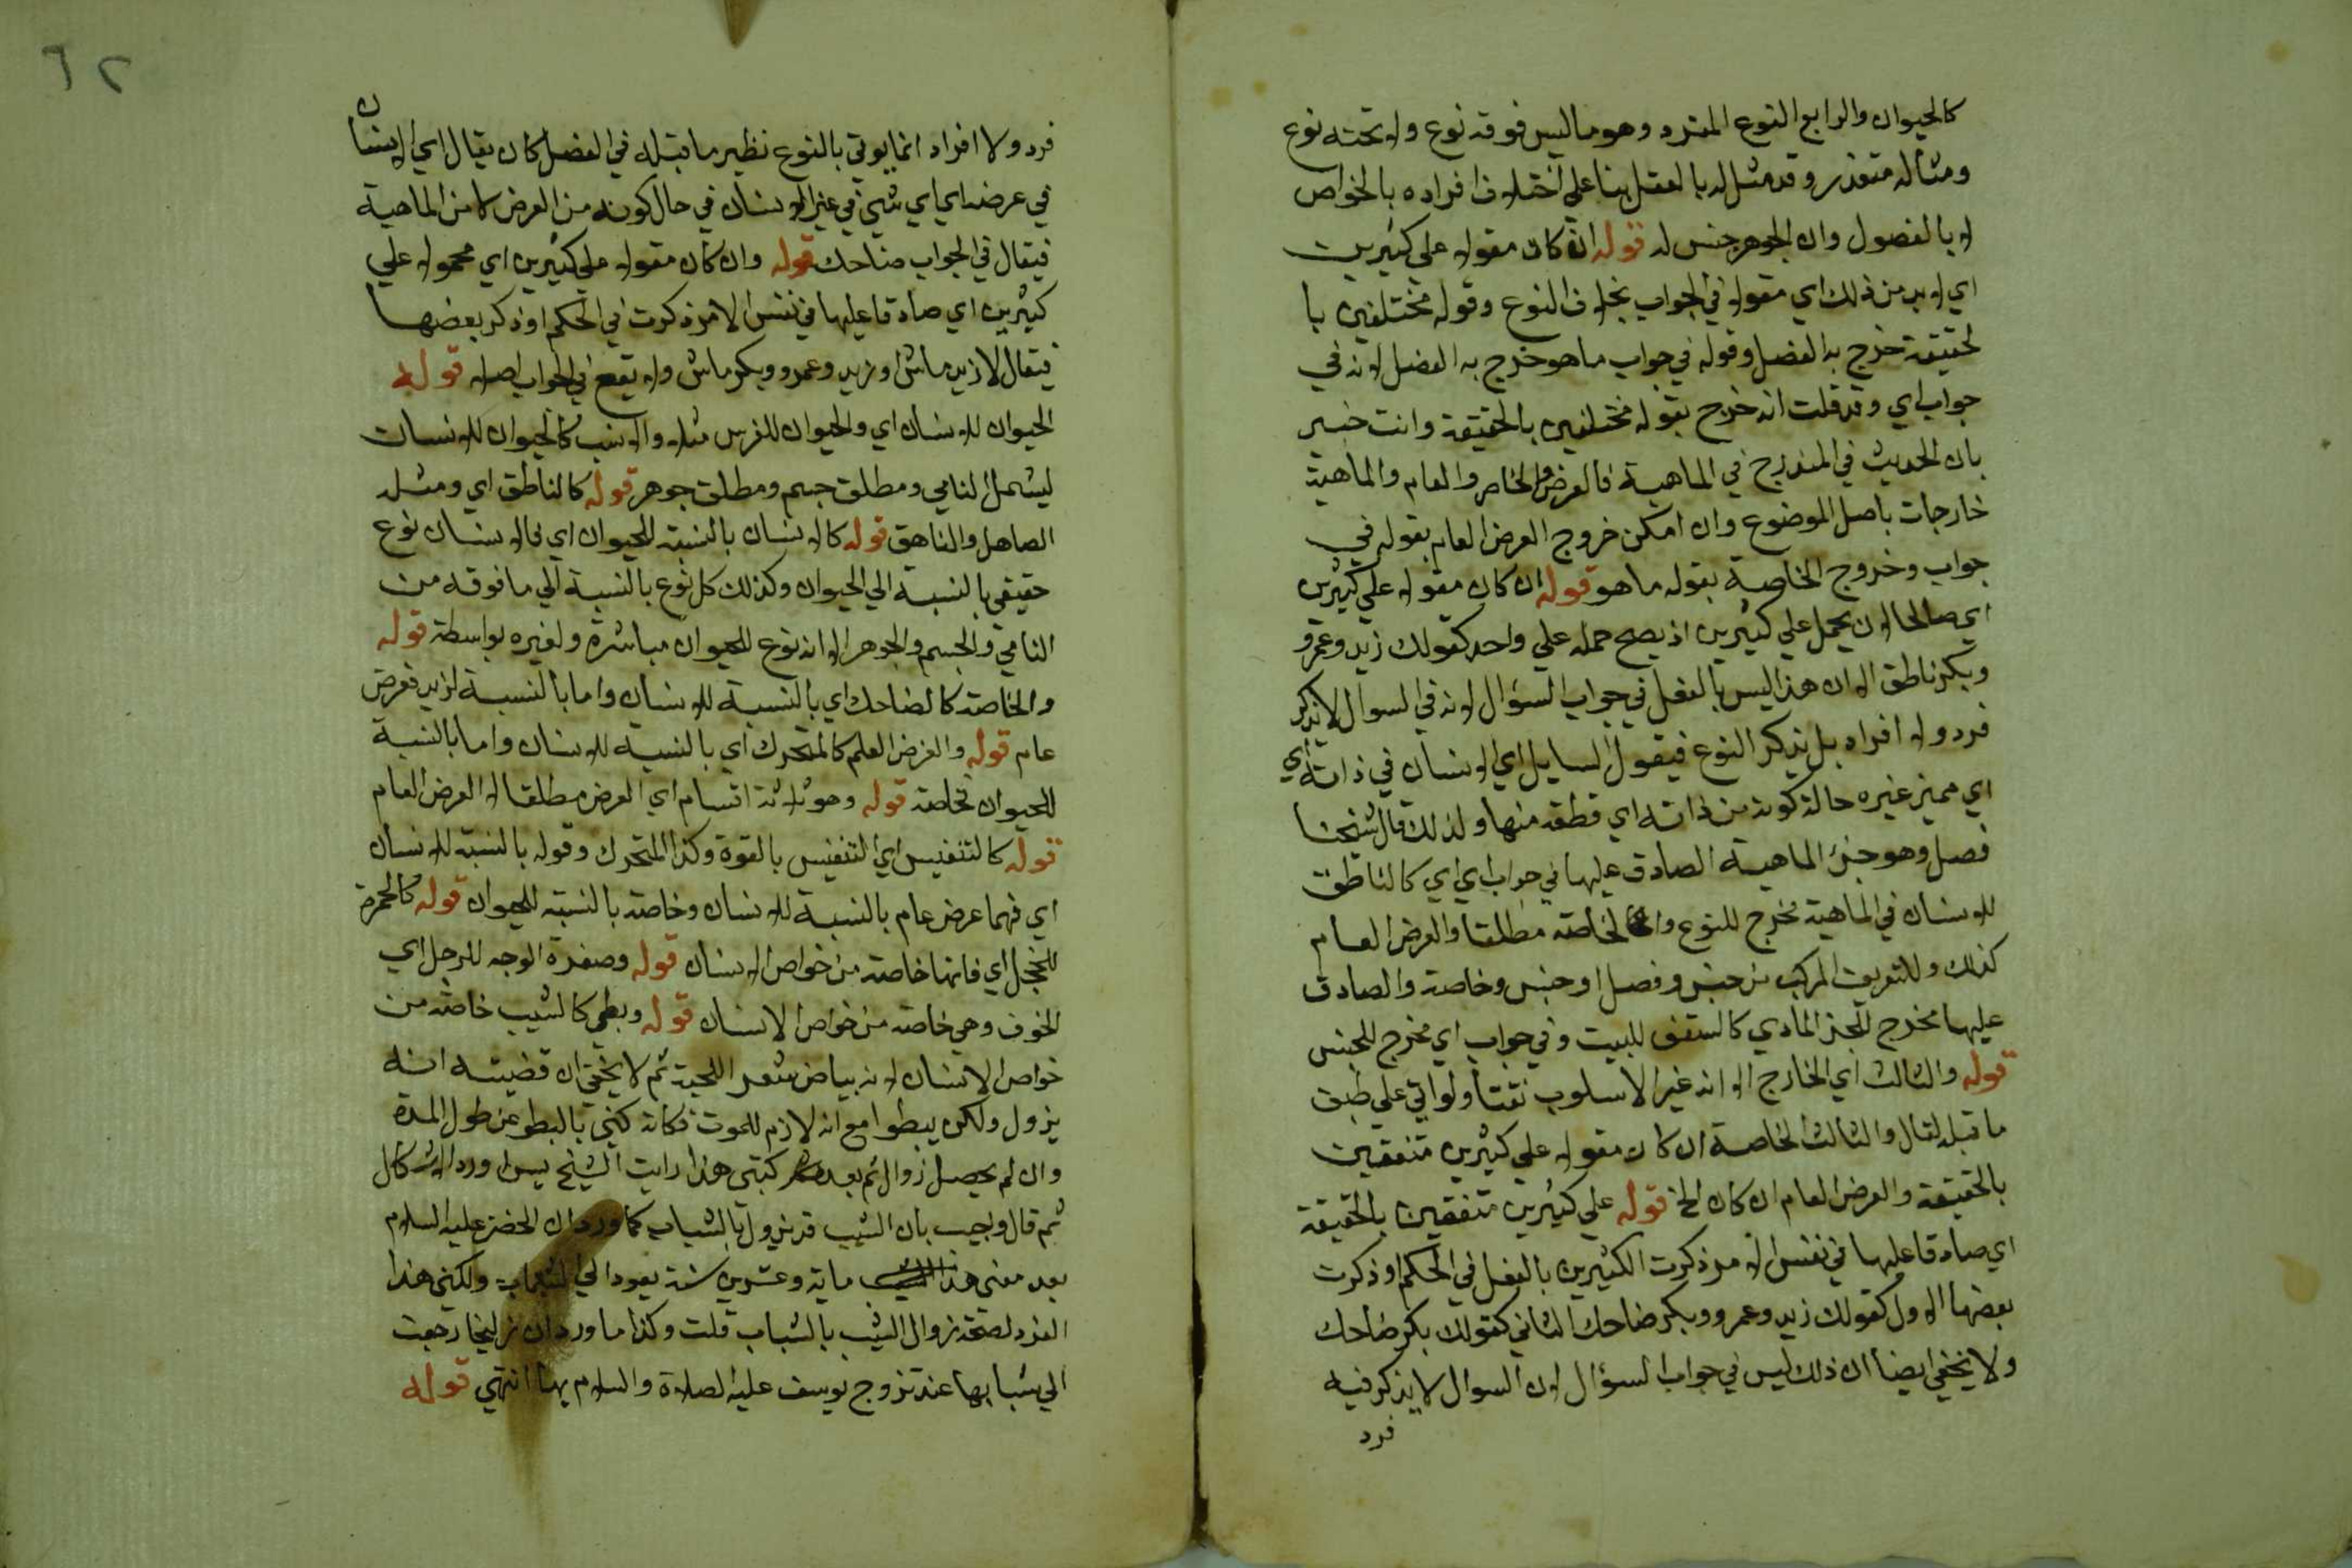 كالحيوان والرابع النوع المنفرد وهو ما ليس فوقه نوع ولا تحته نوع
ومثاله متعذر وقد مثل له بالعقل بنا على اختلاف افراده بالخواص
لا بالفصول وان الجوهر جنس له قوله ان كان مقولا على كثيرين
اي لا بد من ذلك اي مقولا في الجواب بخلاف النوع وقوله مختلفين با
لحقيقة خرج به الفصل وقوله في جواب ما هو خرج به الفصل لانه في
جواب اي وقد قلت انه خرج بقوله مختلفين بالحقيقة وانت خبير
بان الحديث في المندرج في الماهية فالعرض والخاص والعام والماهية
خارجات باصل الموضوع وان امكن خروج العرض العام بقوله في
جواب وخروج الخاصة بقوله ما هو قوله ان كان مقولا على كثيرين
اي صالحا لان يحمل علي كثيرين اذ يصح حمله علي واحد كقولك زيد وعمرو
وبكر ناطق الا ان هذا ليس بالفعل في جواب السؤال لانه في السوال لا يذكر
فرد ولا افراد بل يذكر النوع فيقول السايل اي الانسان في ذاته اي
اي مميز غيره حالة كونه من ذاته اي قطعة منها ولذلك قال شيخنا
فصل وهو جزء الماهية الصادق عليها في جواب اي اي كالناطق
للانسان في الماهية مخرج للنوع والخاصة مطلقا والعرض العام
كذلك وللتعريف المركب من جنس وفصل او جنس وخاصة والصادق
عليها مخرج للجزء المادي كالسقف للبيت وفي جواب اي مخرج للجنس
قوله والثالث اي الخارج الا انه غير الاسلوب تفننا ولو اتي علي طبق
ما قبله لقال والثالث الخاصة ان كان مقولا علي كثيرين متفقين
بالحقيقة والعرض العام ان كان الخ قوله علي كثيرين متفقين بالحقيقة
اي صادقا عليها في نفس الامر ذكرت الكثيرين بالفعل في الحكم او ذكرت
بعضها الاول كقولك زيد وعمرو وبكر ضاحك الثاني كقولك بكر ضاحك
ولا يخفي ايضا ان ذلك ليس في جواب السؤال لان السوال لا يذكر فيه
فرد
٦٢
فرد ولا افراد انما يوتي بالنوع نظير ما قبله في الفصل كان يقال اي الانسان
في عرضه اي اي شي في غير الانسان في حال كونه من العرض لا من الماهية
فيقال في الجواب ضاحك قوله وان كان مقولا علي كثيرين اي محمولا علي
كثيرين اي صادقا عليها في نفس الامر ذكرت في الحكم او ذكر بعضها
فيقال لا زيد ماش او زيد وعمرو وبكر ماش ولا يقع في الجواب اصلا قوله
الحيوان للانسان اي والحيوان للفرس مثلا والانسب كالحيوان للانسان
ليشمل النامي ومطلق جسم ومطلق جوهر قوله كالناطق اي ومثله
الصاهل والناهق قوله كالانسان بالنسبة للحيوان اي فالانسان نوع
حقيقي بالنسبة الي الحيوان وكذلك كل نوع بالنسبة الي ما فوقه من
النامي والجسم والجوهر الا انه نوع للحيوان مباشرة ولغيره بواسطة قوله
والخاصة كالضاحك اي بالنسبة للانسان واما بالنسبة لزيد فعرض
عام قوله والعرض العام كالمتحرك اي بالنسبة للانسان واما بالنسبة
للحيوان فخاصة قوله وهو ثلاثة اقسام اي العرض مطلقا لا العرض العام
قوله كالتنفيس اي التنفيس بالقوة وكذا المتحرك وقوله بالنسبة للانسان
اي فهما عرض عام بالنسبة للانسان وخاصة بالنسبة للحيوان قوله كالحمرة
للخجل اي فانها خاصة من خواص الانسان قوله وصفرة الوجه للرجل اي
الخوف وهي خاصة من خواص الانسان قوله وبطي كالشيب خاصة من
خواص الانسان لانه بياض شعر اللحية ثم لا يخفي ان قضيته انه
يزول ولكن يبطوا مع انه لازم للموت فكانه كني بالبطو عن طول المدة
وان لم يحصل زوال ثم بعد كتبي هذا رايت الشيخ يس اورد الاشكال
ثم قال ويجيب بان الشيب قد يزول بالشباب كما ورد ان الخضر عليه السلام
بعد مضي ماية وعشرين سنة يعود الي الشباب ولكني هذا
الفرد لصحة زوال الشيب بالشباب قلت وكذا ما ورد ان زليخا رجعت
الي شبابها عند تزوج يوسف عليه الصلاة والسلام بها انتهي قوله